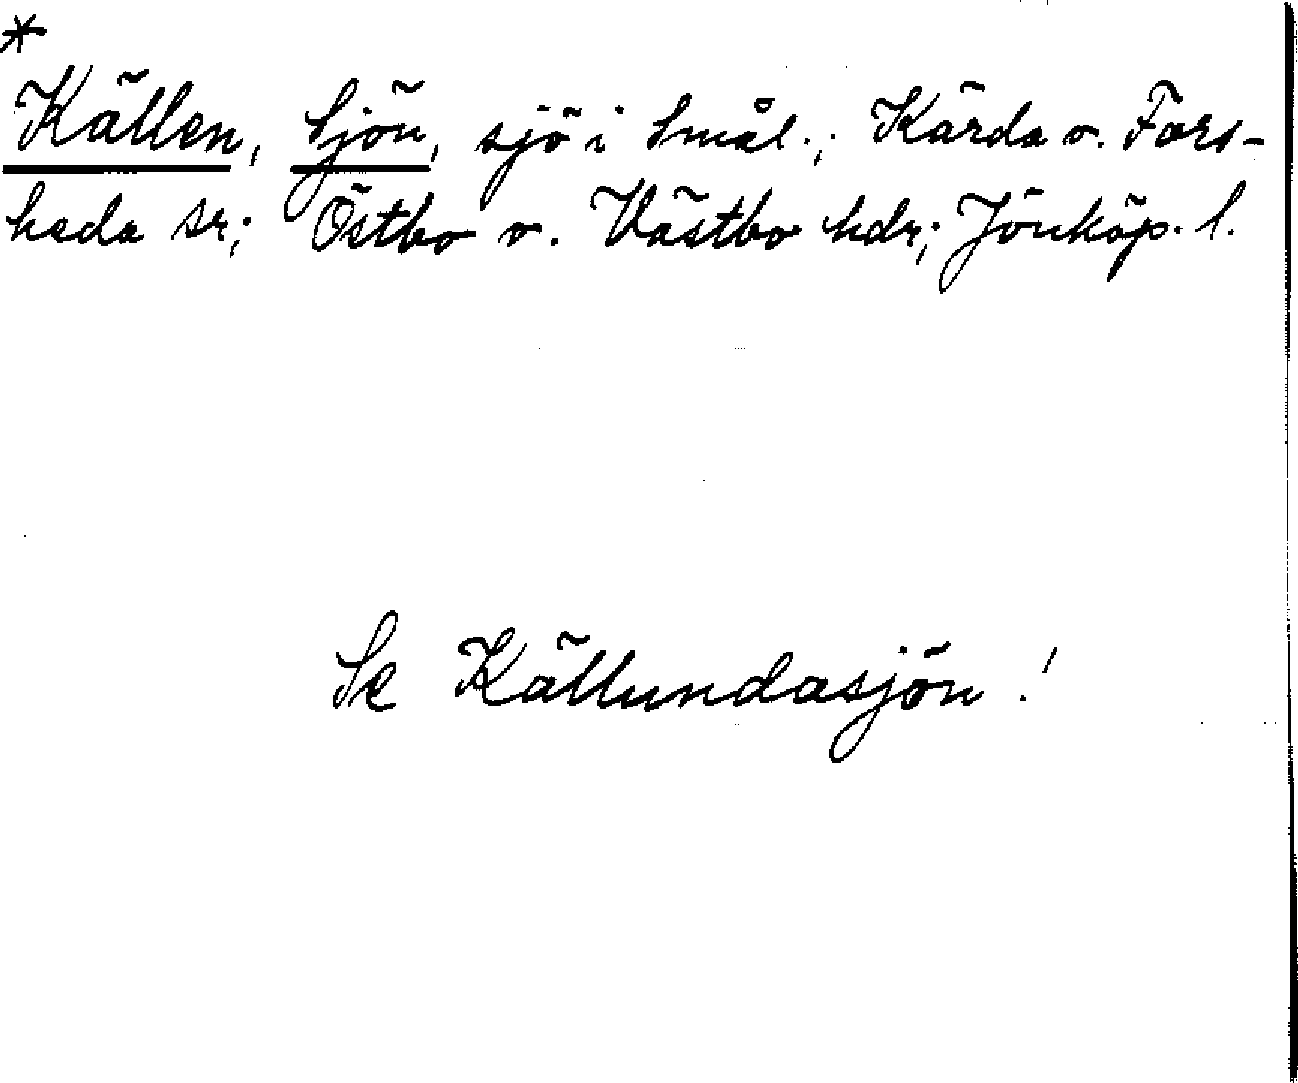 *
Källen, Sjön, sjö i Smål.; Kärda o. Fors-
heda snr; Östbo o. Västbo hdr; Jönköp. l.
Se Källundasjön!